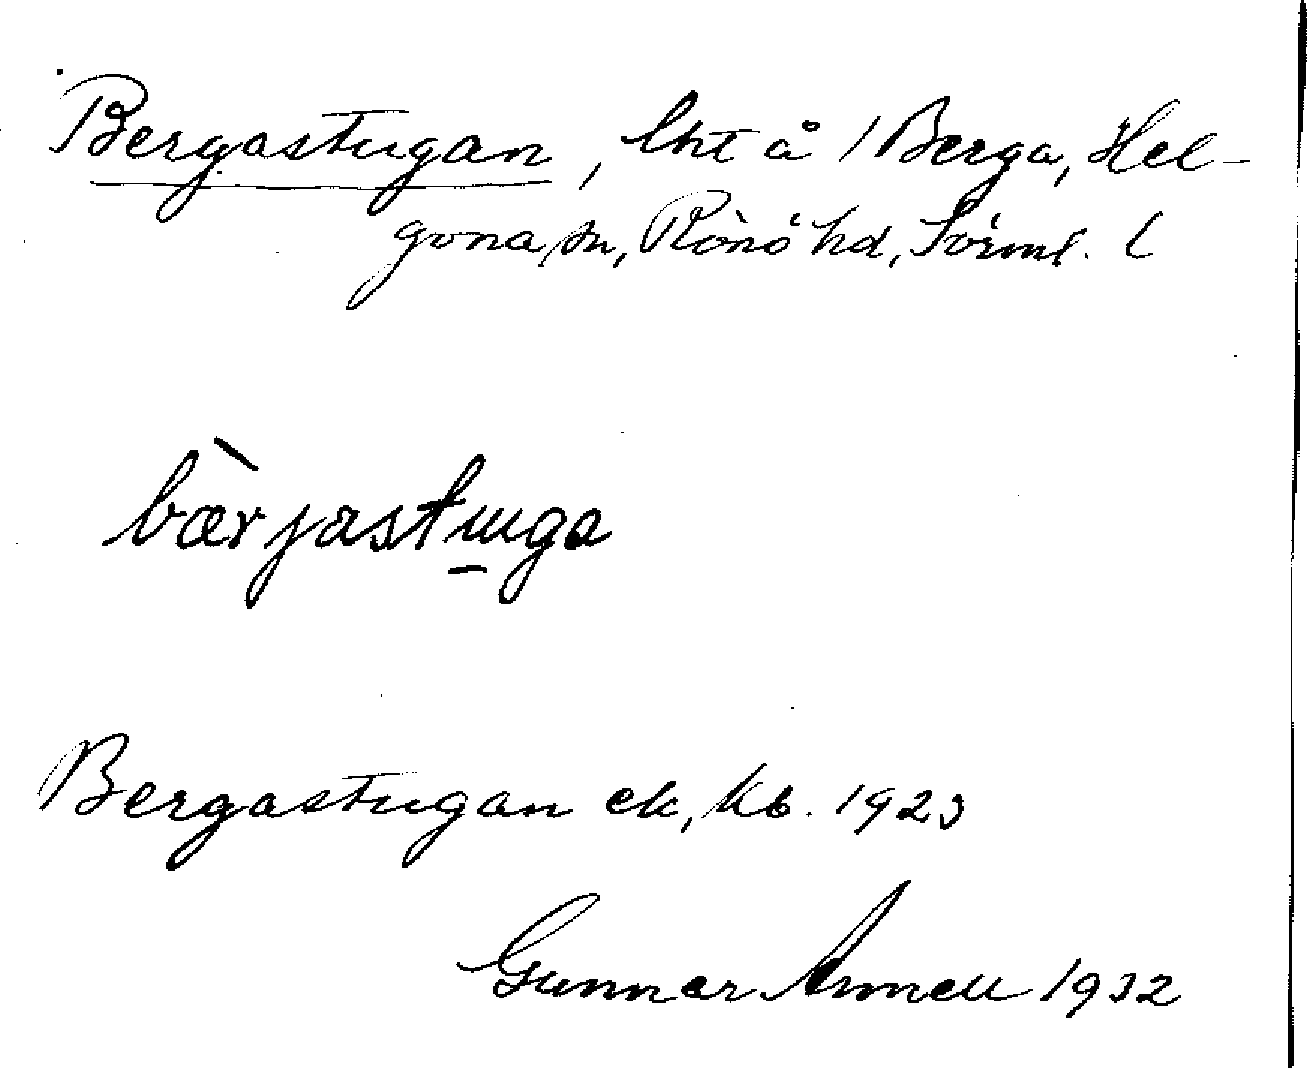 Bergastugan, lht å 1 Berga, Hel-
gona sn, Rönö hd, Sörml. l
bærjastuga
Bergastugan ek, kb. 1923
Gunnar Annell 1932